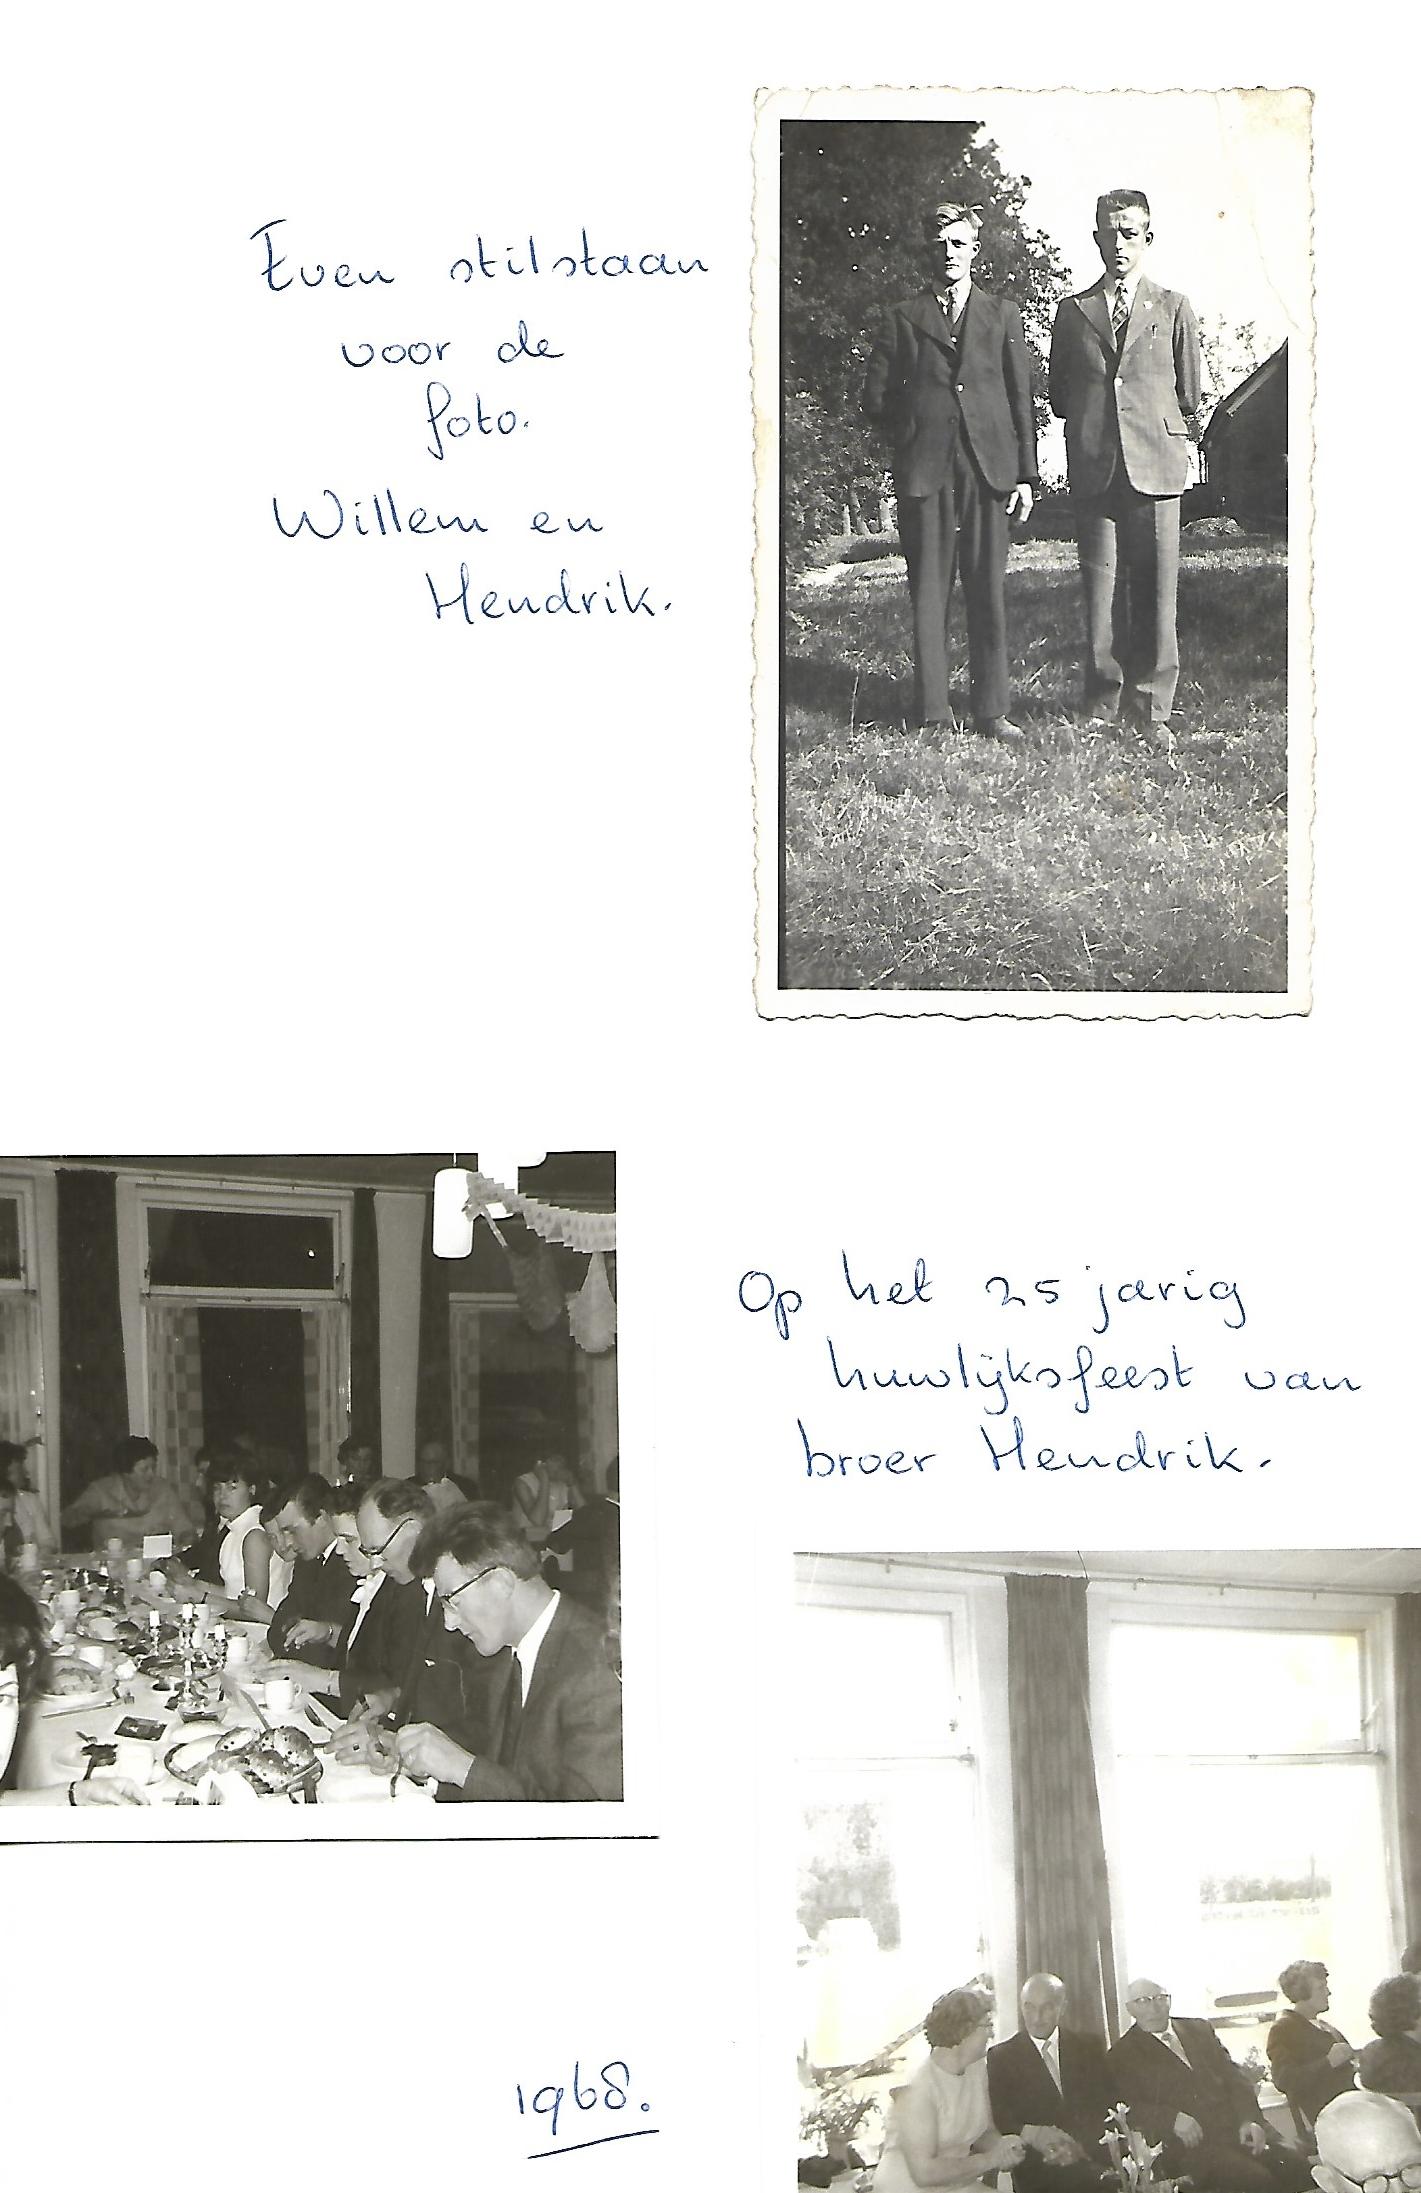 Even stilstaan
voor de
foto.
Willem en
Hendrik.
Op het 25 jarig
huwlijksfeest van
broer Hendrik.
1968.